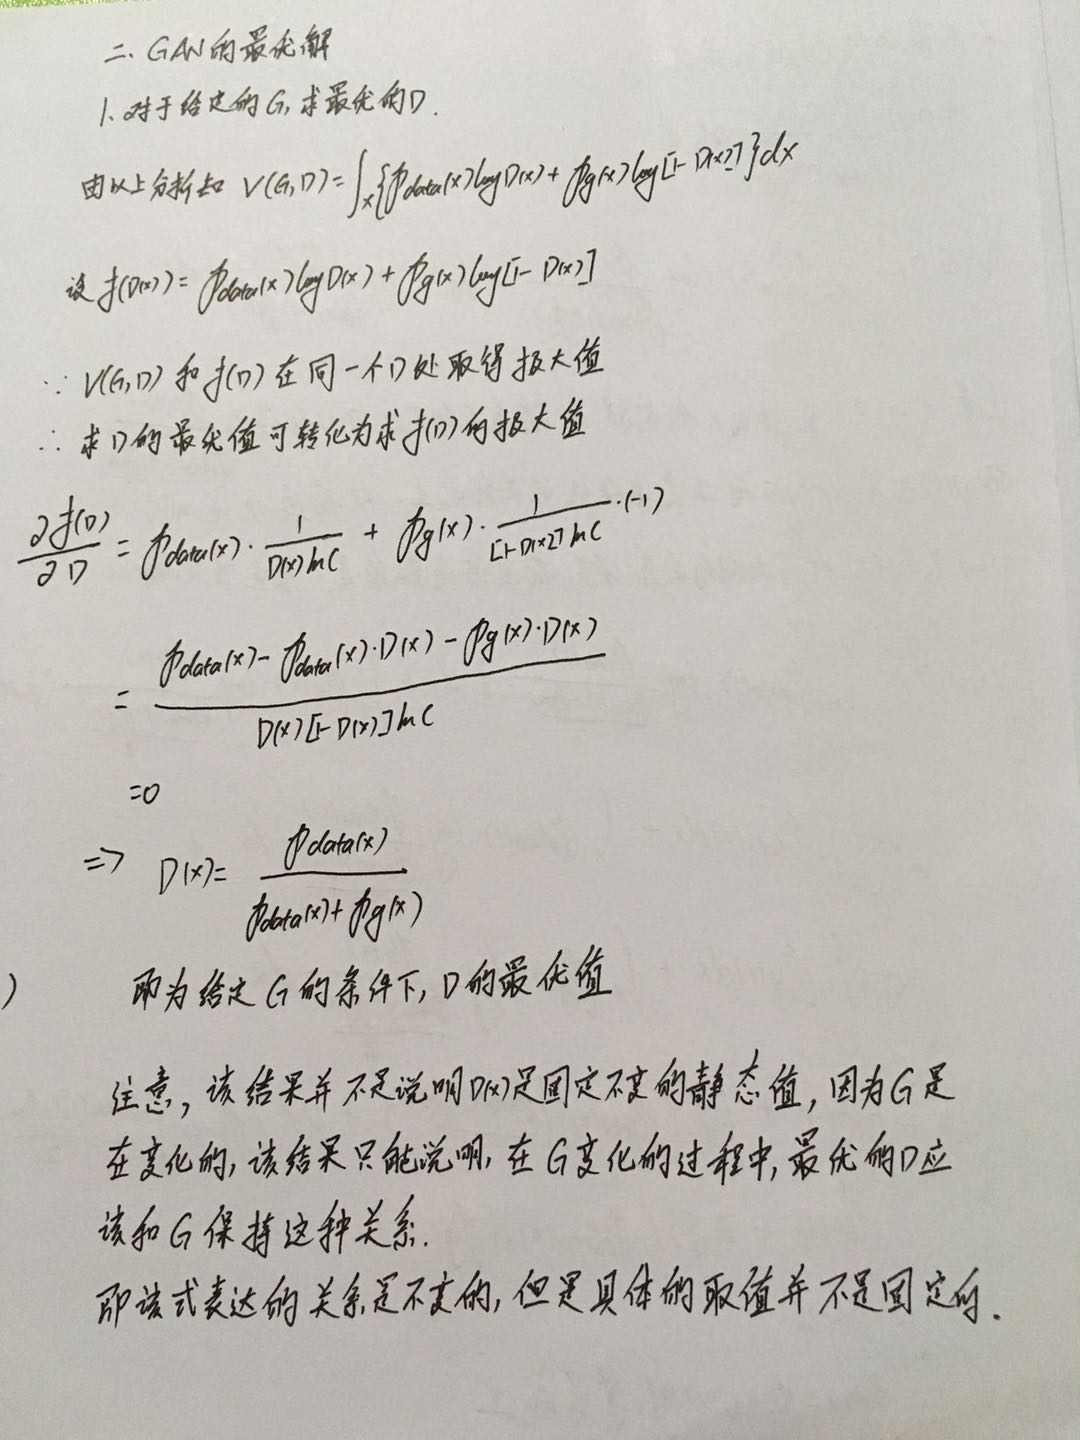 二、GAN的最优解
1、对于给定的G,求最优的D.
由以上分析知 V(G,D)=∫x{pdata(x)logD(x)+pg(x)log[1-D(x)]}dx
设f(D(x))=pdata(x)logD(x)+pg(x)log[1-D(x)]
∵ V(G,D)和f(D)在同一个D处取得极大值
∴ 求D的最优值可转化为求f(D)的极大值
∂f(D)/∂D = pdata(x)·1/(D(x)lnC) + pg(x)·1/([1-D(x)]lnC)·(-1)
= (pdata(x)-pdata(x)·D(x)-pg(x)·D(x))/(D(x)[1-D(x)]lnC)
=0
=> D(x)= pdata(x)/(pdata(x)+pg(x))
) 即为给定G的条件下,D的最优值
注意,该结果并不是说明D(x)是固定不变的静态值,因为G是
在变化的,该结果只能说明,在G变化的过程中,最优的D应
该和G保持这种关系.
即该式表达的关系是不变的,但是具体的取值并不是固定的.